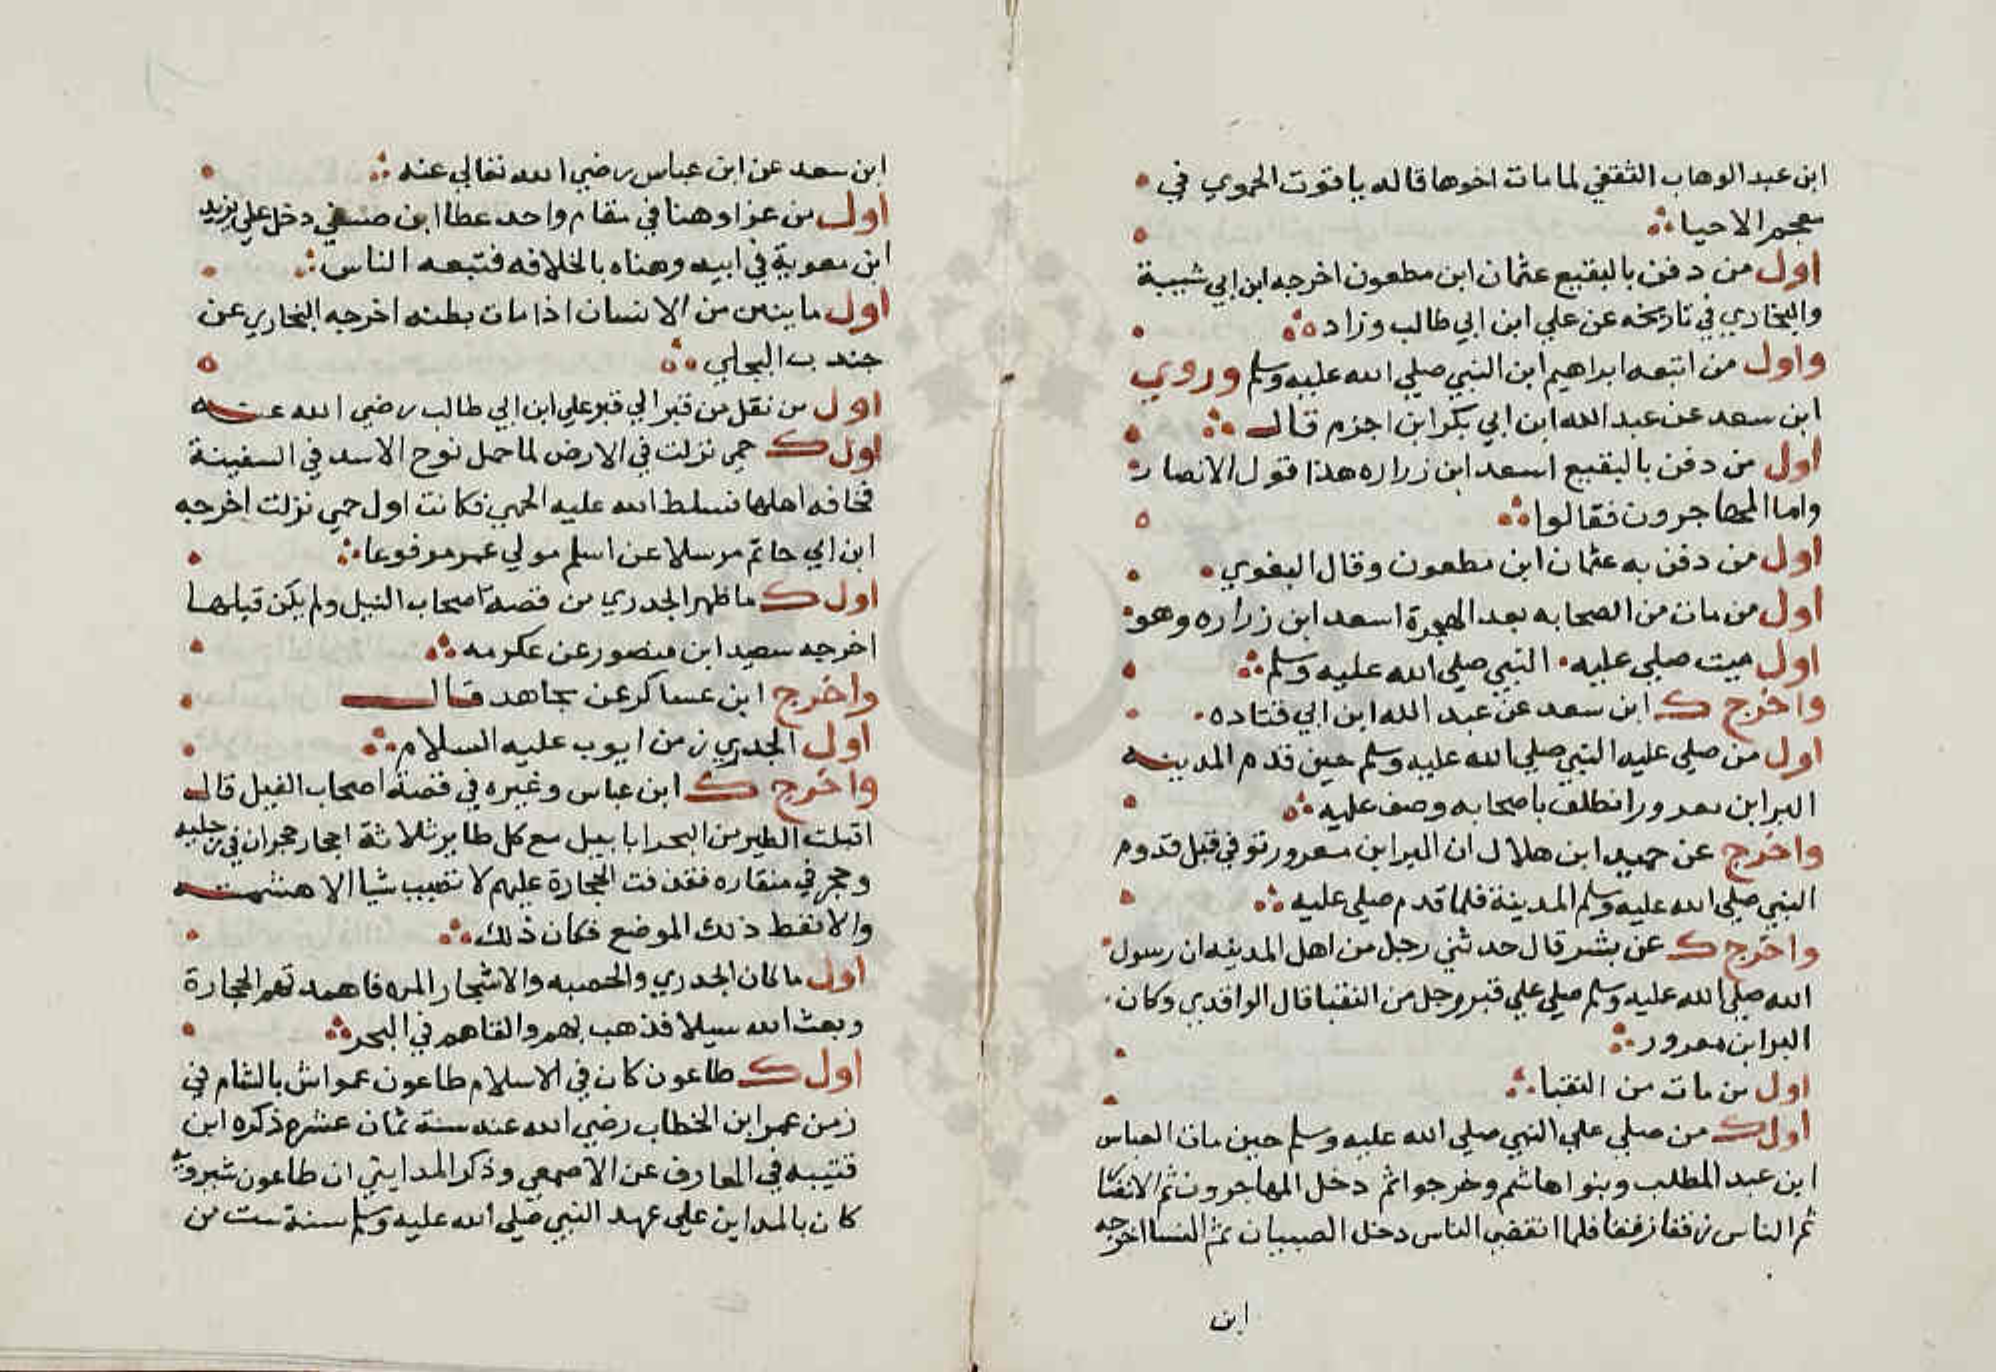 ابن عبد الوهاب الثقفي لما مات اخوها قاله ياقوت الحموي في
معجم الاحيا
اول من دفن بالبقيع عثمان ابن مطعون اخرجه ابن ابي شيبة
والبخاري في تاريخه عن علي ابن ابي طالب وزاده
واول من اتبعه ابراهيم ابن النبي صلي الله عليه وسلم وروي
ابن سعد عن عبد الله ابن ابي بكر ابن اجزم قال
اول من دفن بالبقيع اسعد ابن زراره هذا قول الانصار
واما المهاجرون فقالوا
اول من دفن به عثمان ابن مطعون وقال البغوي
اول من مات من الصحابه بعد الهجرة اسعد ابن زراره وهو
اول ميت صلي عليه النبي صلي الله عليه وسلم
واخرج ك ابن سعد عن عبد الله ابن ابي قتاده
اول من صلي عليه النبي صلي الله عليه وسلم حين قدم المدينه
البر ابن معرور انطلق باصحابه وصف عليه
واخرج عن حميد ابن هلال ان البر ابن معرور توفي قبل قدوم
النبي صلي الله عليه وسلم المدينة فلما قدم صلي عليه
واخرج ك عن بشر قال حدثني رجل من اهل المدينه ان رسول
الله صلي الله عليه وسلم صلي علي قبر رجل من النقبا قال الواقدي وكان
البر ابن معرور
اول من مات من النقبا
اول ك من صلي علي النبي صلي الله عليه وسلم حين مات العباس
ابن عبد المطلب وبنوا هاشم وخرجوا ثم دخل المهاجرون ثم
ثم الناس زفقا زفقا فلما انقضي الناس دخل الصبيان ثم النسا اخرجه
ابن
ابن سعد عن ابن عباس رضي الله تعالي عنه
اول من عزا وهنا في مقام واحد عطا ابن صيفي دخل علي يزيد
ابن معوية في ابيه وهناه بالخلافه فتبعه الناس
اول ما ينتن من الانسان اذا مات بطنه اخرجه البخاري عن
جندب البجلي
اول من نقل من قبر الي قبر علي ابن ابي طالب رضي الله عنه
اول ك حمي نزلت في الارض لما حمل نوح الاسد في السفينة
فخافه اهلها فسلط الله عليه الحمي فكانت اول حمي نزلت اخرجه
ابن ابي حاتم مرسلا عن اسلم مولي عمر مرفوعا
اول ك ما ظهر الجدري من قصة اصحاب الفيل ولم يكن قبلها
اخرجه سعيد ابن منصور عن عكرمه
واخرج ابن عساكر عن مجاهد قال
اول الجدري زمن ايوب عليه السلام
واخرج ك ابن عباس وغيره في قصة اصحاب الفيل قال
اقبلت الطير من البحر ابابيل مع كل طاير ثلاثة احجار حجران في رجليه
وحجر في منقاره فقذفت الحجارة عليهم لا تصيب شيا الا هشمته
والا نفط ذلك الموضع فكان ذلك
اول ما كان الجدري والحصبه والاشجار المره فاهمد تهم الحجارة
وبعث الله سيلا فذهب بهم والقاهم في البحر
اول ك طاعون كان في الاسلام طاعون عمواس بالشام في
زمن عمر ابن الخطاب رضي الله عنه سنة ثمان عشره ذكره ابن
قتيبه في المعارف عن الاصمعي وذكر المدايني ان طاعون شيرويه
كان بالمداين علي عهد النبي صلي الله عليه وسلم سنة ست من